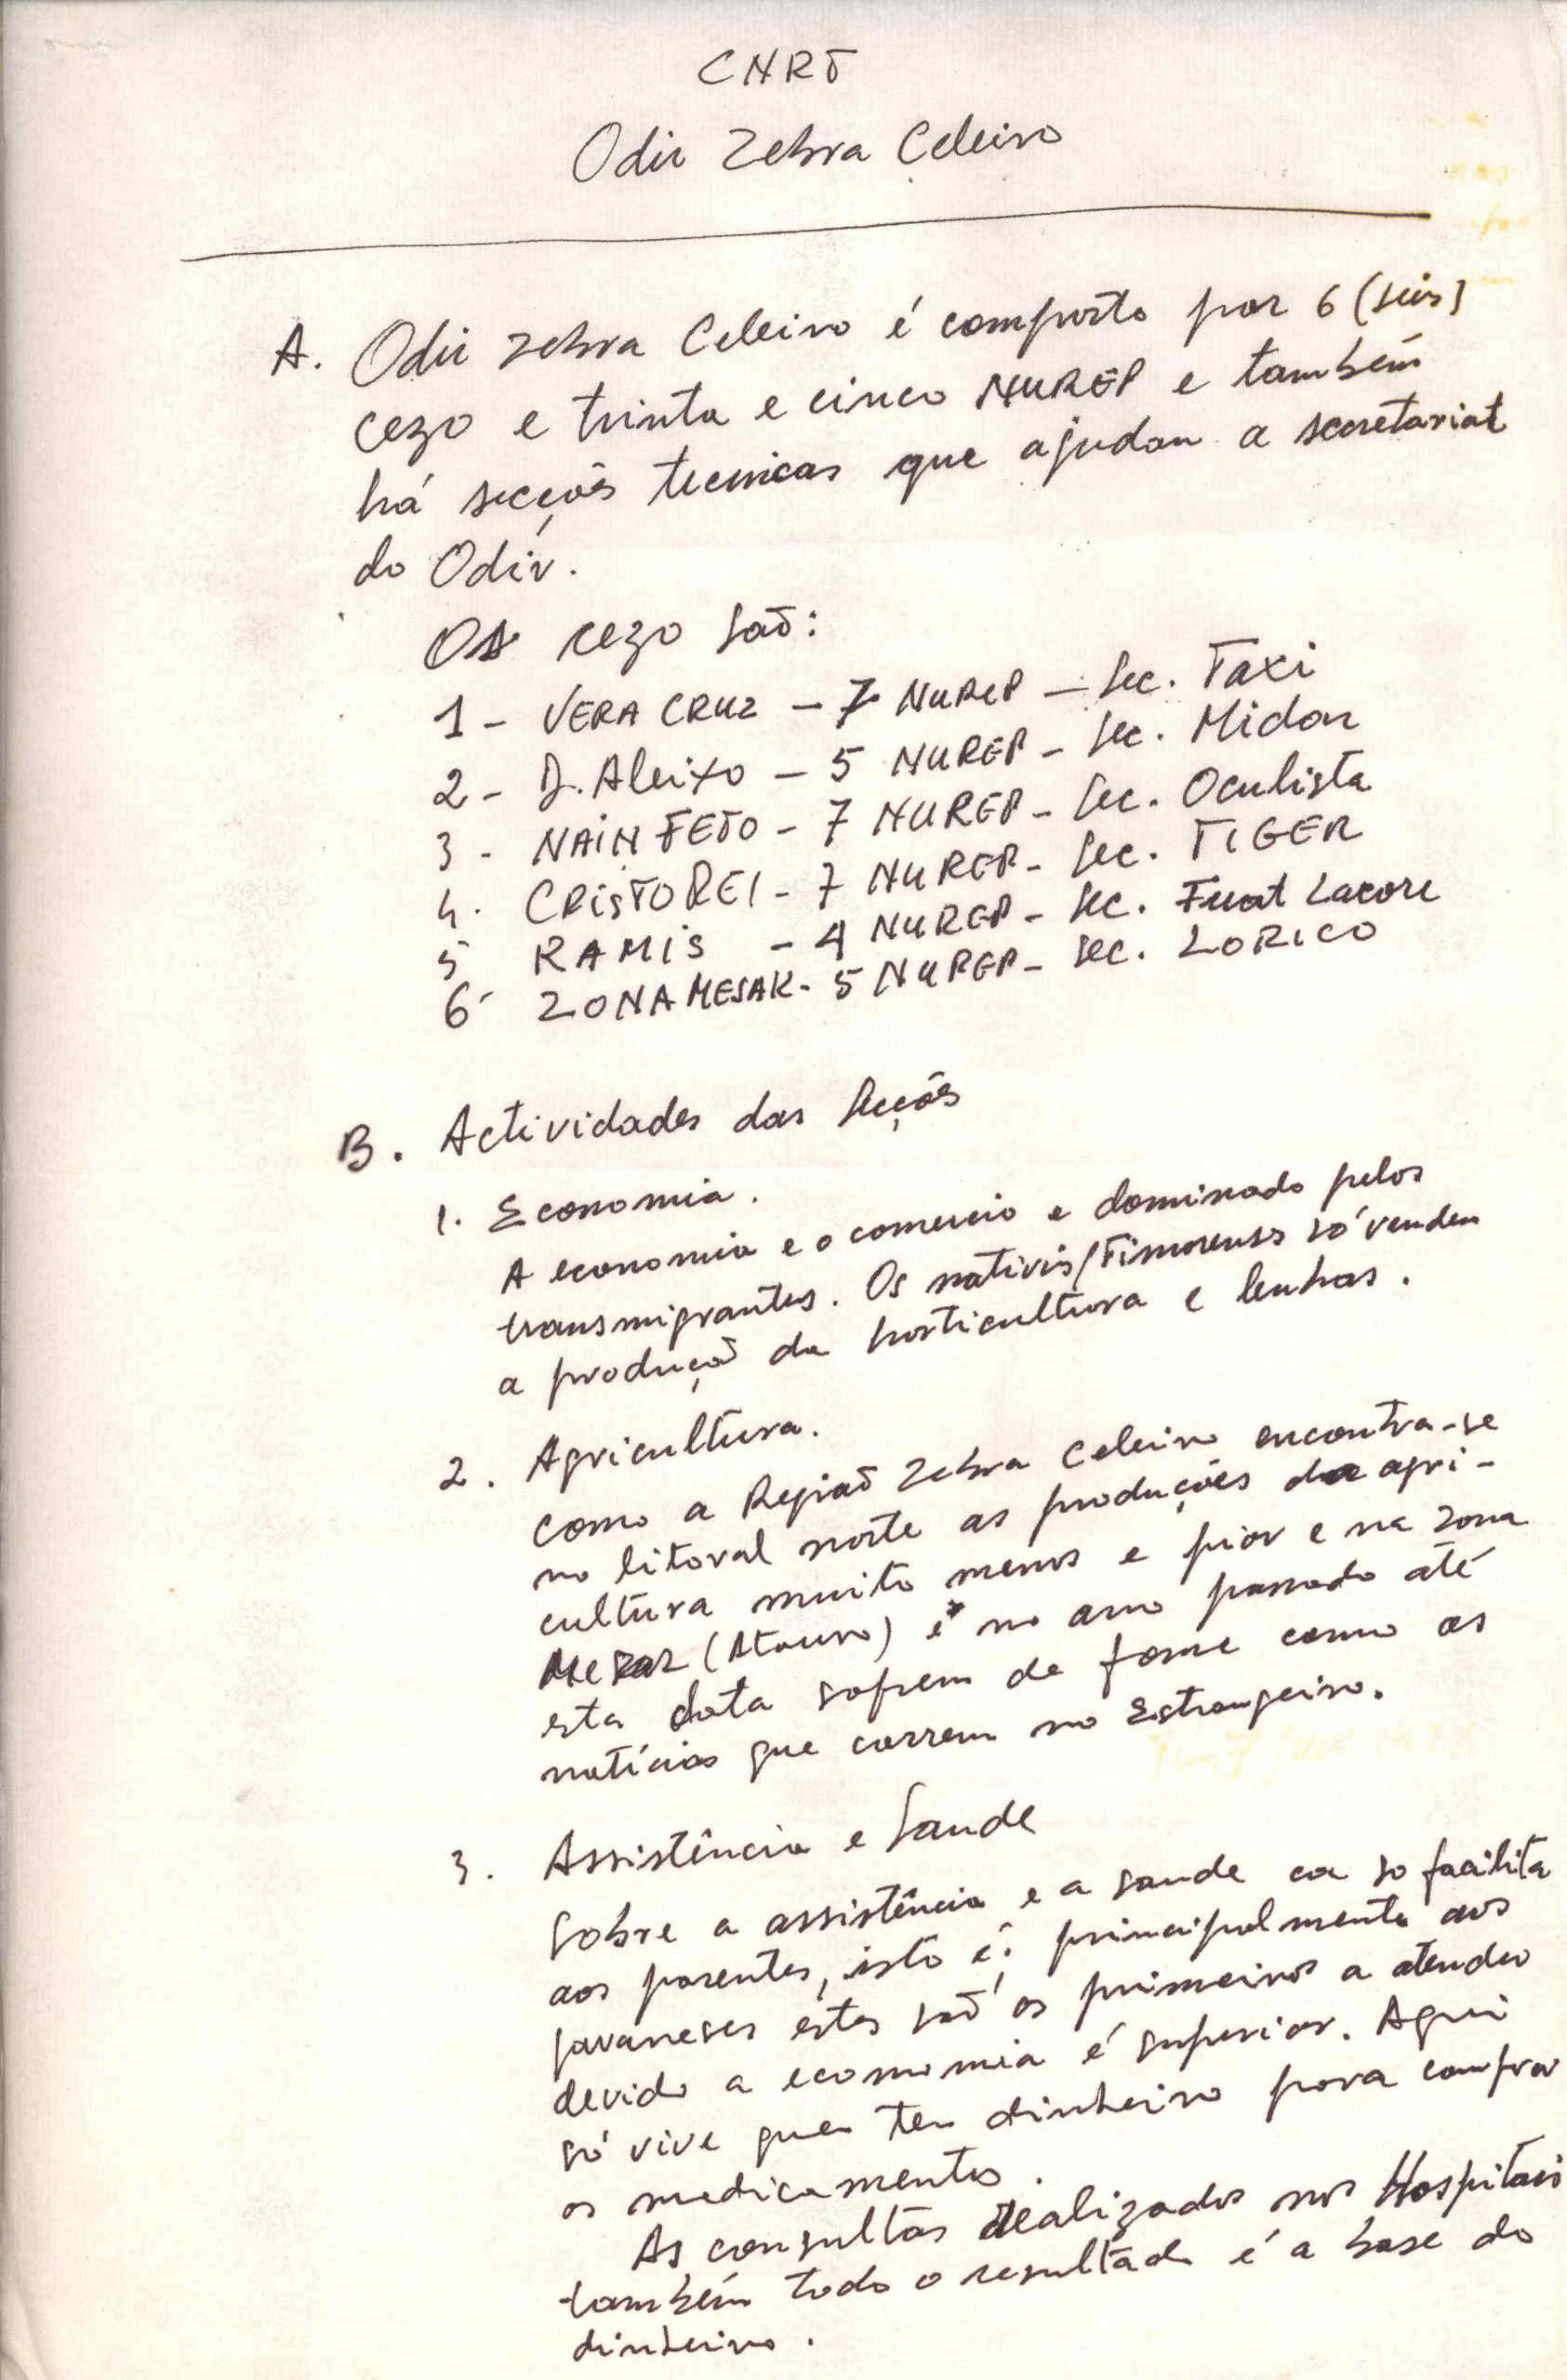 CNRT
Odir Zebra Celeiro
A. Odir Zebra Celeiro é composto por 6 (seis)
cezo e trinta e cinco NUREP e também
há secções tecnicas que ajudam a secretariat
do Odir.
Os cezo são:
1 - VERA CRUZ - 7 NUREP - Sec. Taxi
2 - D. Aleixo - 5 NUREP - Sec. Midar
3 - NAIN FETO - 7 NUREP - Sec. Oculista
4. CRISTO REI - 7 NUREP - Sec. TIGER
5 RAMIS - 4 NUREP - Sec. Fuat Lacore
6 ZONA MESAK - 5 NUREP - Sec. LORICO
B. Actividades das Secções
1. Economia.
A economia e o comercio e dominado pelos
transmigrantes. Os nativos/Timorenses só vendem
a produção da horticultura e lenhas.
2. Agricultura.
Como a Região Zebra Celeiro encontra-se
no litoral norte as produções da agri-
cultura muito menos e pior e na zona
(Atauro) e no ano passado até
esta data sofrem de fome como as
notícias que correm no Estrangeiro.
3. Assistência e Saude
Sobre a assistência e a saude ca so facilita
aos parentes, isto é: principalmente aos
javaneses estes são os primeiros a atender
devido a economia é superior. Aqui
só vive quem tem dinheiro para comprar
os medicamentos.
As consultas realizados nos Hospitais
também todo o resultado é a base do
dinheiro.